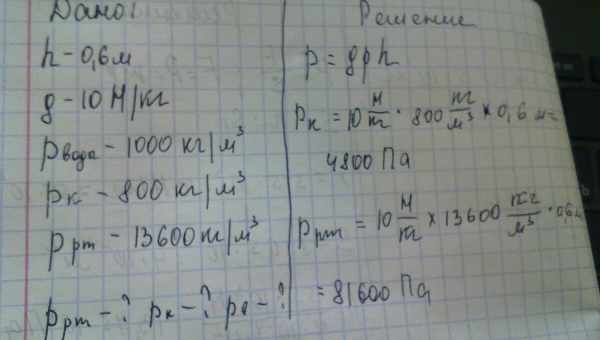 Дано:
h - 0,6 м
g - 10 Н/кг
ρвода - 1000 кг/м³
ρк - 800 кг/м³
ρрт - 13600 кг/м³
pрт - ? pк - ? pв - ?
Решение
p = gρh
pк = 10 Н/кг · 800 кг/м³ × 0,6 м =
4800 Па
pрт = 10 Н/кг × 13600 кг/м³ · 0,6м
= 81600 Па